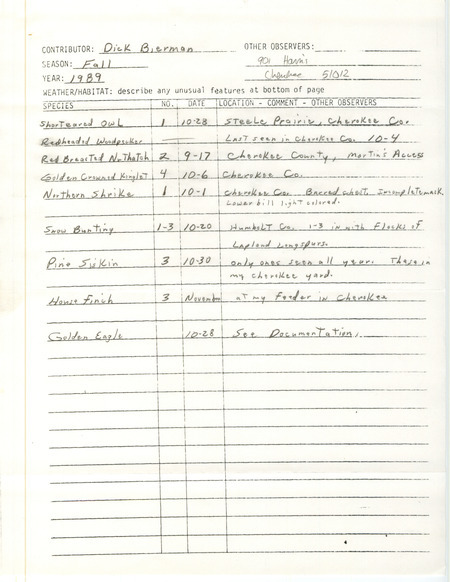 CONTRIBUTOR: Dick Bierman OTHER OBSERVERS:
SEASON: Fall 901 Harri
YEAR: 1989 Cherokee 51012
WEATHER/HABITAT: describe any unusual features at bottom of page
SPECIES NO. DATE LOCATION - COMMENT - OTHER OBSERVERS
Shorteared Owl 1 10-28 Steele Prairie, Cherokee Co.
Redheaded Woodpecker — Last seen in Cherokee Co. 10-4
Red Breasted Nuthatch 2 9-17 Cherokee County, Martin's Access
Golden Crowned Kinglet 4 10-6 Cherokee Co.
Northern Shrike 1 10-1 Cherokee Co. Barred chest, Incomplete mask,
Lower bill light colored.
Snow Bunting 1-3 10-20 Humbolt Co. 1-3 in with Flocks of
Lapland Longspurs.
Pine Siskin 3 10-30 only ones seen all year. These in
my Cherokee yard.
House Finch 3 November at my Feeder in Cherokee
Golden Eagle 10-28 See Documentation.